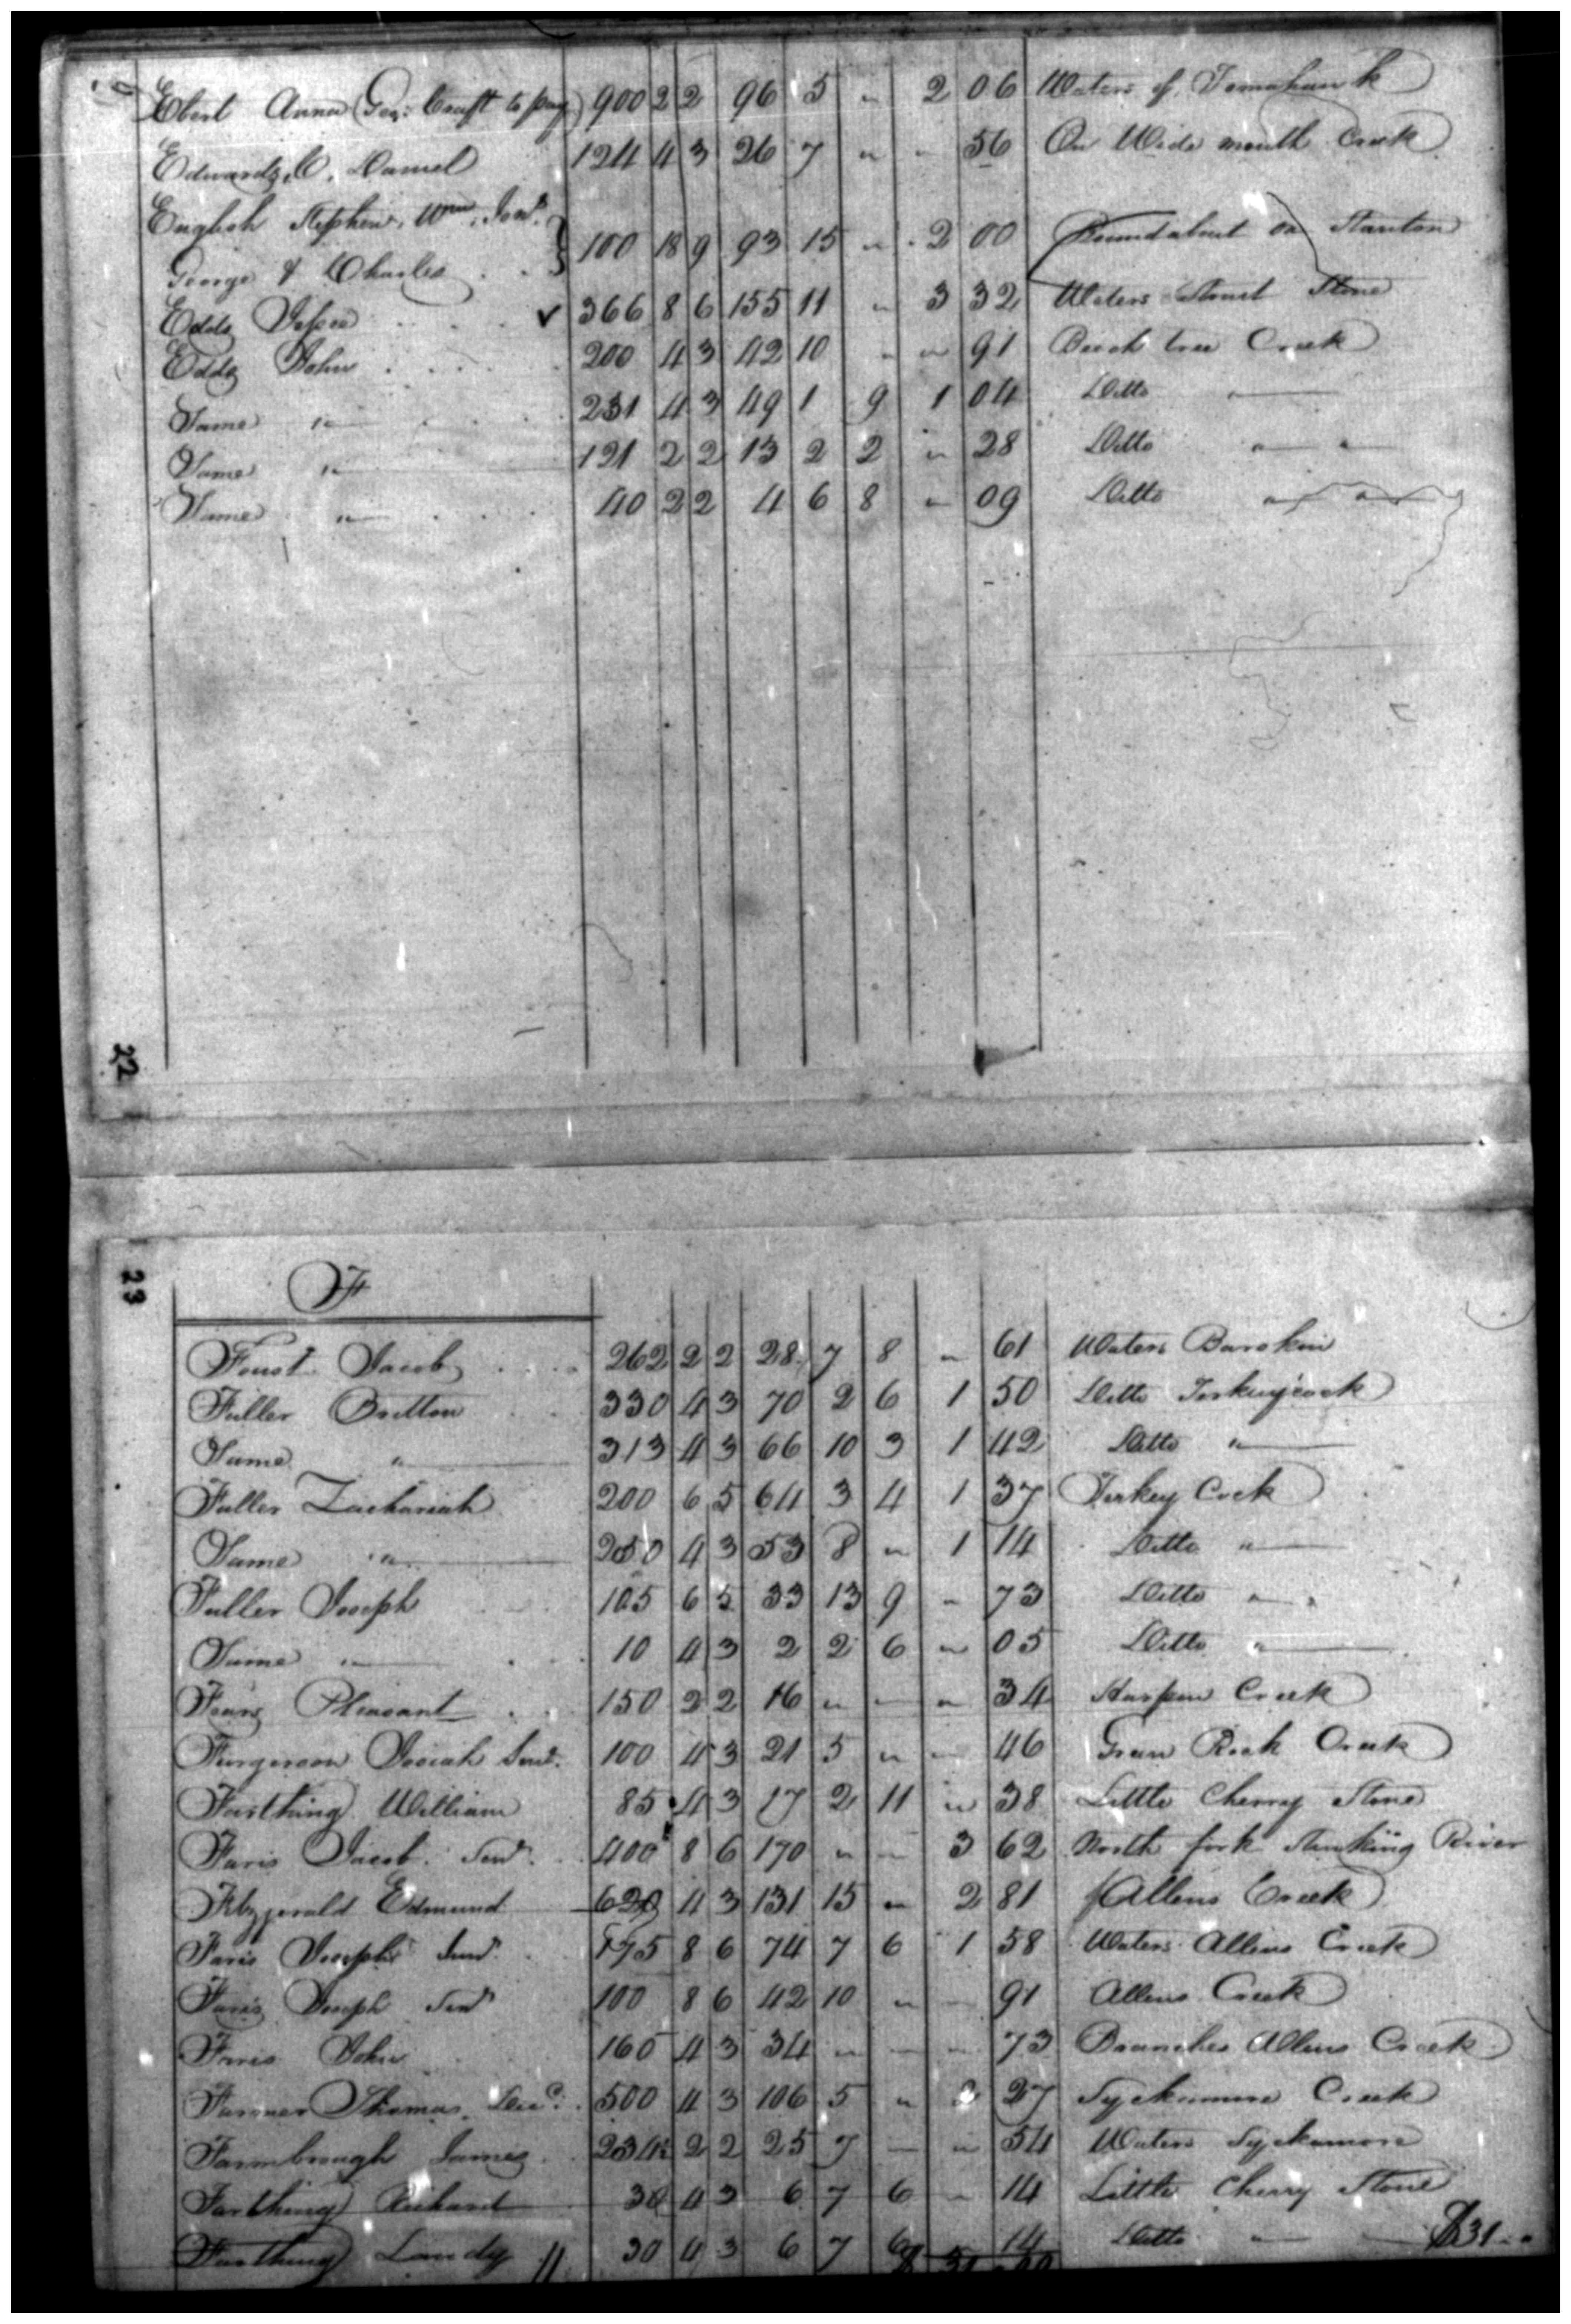 Ebert Anna (Geo: Craft to pay) 900 2 2 96 5 " 2 06 Waters of Tomahawk
Edwards, C. Daniel 124 4 3 26 7 " " 56 On Wide mouth Creek
English Stephen, Wm, Jno.
George & Charles } 100 18 9 93 15 " 2 00 Roundabout on Stanton
Edds Jesse ✓ 366 8 6 155 11 " 3 32 Waters Stone
Edds John 200 4 3 42 10 " " 91 Beech tree Creek
Same " 231 4 3 49 1 9 1 04 Ditto "
Same " 121 2 2 13 2 2 " 28 Ditto " "
Same " 40 2 2 4 6 8 " 09 Ditto " "
22
23
F
Foust Jacob 262 2 2 28 7 8 " 61 Waters Barskin
Fuller Britton 330 4 3 70 2 6 1 50 Ditto Turkeycock
Same " 313 4 3 66 10 3 1 42 Ditto "
Fuller Zachariah 200 6 5 64 3 4 1 37 Turkey Cock
Same " 250 4 3 53 8 " 1 14 Ditto "
Fuller Joseph 105 6 5 33 13 9 " 73 Ditto " "
Same " 10 4 3 2 2 6 " 05 Ditto "
Fears Pleasant 150 2 2 16 " " " 34 Harpen Creek
Furgerson Josiah 100 4 3 21 5 " " 46 Green Rock Creek
Farthing William 85 4 3 17 2 11 " 38 Little Cherry Stone
Faris Jacob Senr. 400 8 6 170 " " 3 62 North fork Stinking River
Fitzgerald Edmund 620 4 3 131 15 " 2 81 Allens Creek
Faris Joseph Junr. 175 8 6 74 7 6 1 58 Waters Allens Creek
Faris Joseph Senr 100 8 6 42 10 " " 91 Allens Creek
Faris John 160 4 3 34 " " " 73 Branches Allens Creek
Farmer Thomas, Decd. 500 4 3 106 5 " 2 27 Syckamore Creek
Farmbrough James 234 2 2 25 7 — " 54 Waters Syckamore
Farthing Richard 30 4 3 6 7 6 " 14 Little Cherry Stone
Farthing Landy 30 4 3 6 7 6 14 Ditto " $31